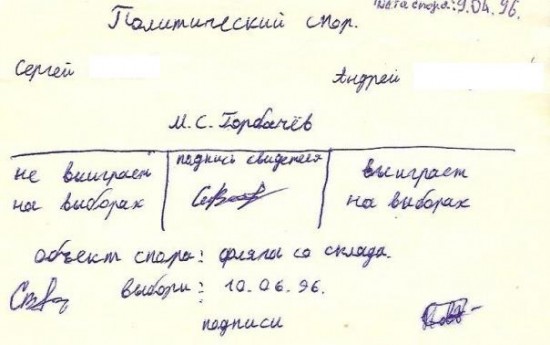 Дата спора: 9.04.96.
Политический спор.
Сергей Андрей
М.С. Горбачёв
не выиграет на выборах
подпись свидетеля
выиграет на выборах
объект спора: фляга со склада.
выборы: 10.06.96.
подписи